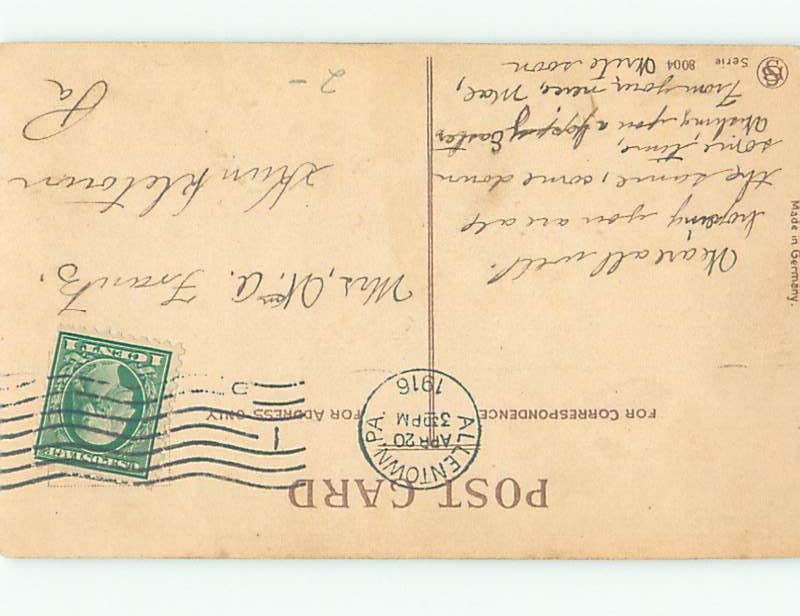 POST CARD
FOR CORRESPONDENCE
FOR ADDRESS ONLY
ALLENTOWN, PA.
APR 20
3 30 PM
1916
1
D
U.S. POSTAGE
1 CENT 1
We are all well.
hoping you are als
the same, come down
some, time,
Wishing you a happy Easter
From your, niece, Mae,
Write soon
Mrs, Wm A. Frantz,
Kunkletown
Pa
2-
Serie 8004
Made in Germany.